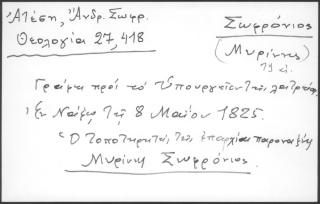 Ἀτέση, Ἀνδρ. Σωφρ.
Θεολογία 27, 418
Σωφρόνιος
(Μυρίνης)
19 αἰ.
Γράμμα πρὸς τὸ Ὑπουργεῖον τῆς λατρείας,
Ἐν Νάξῳ τῇ 8 Μαΐου 1825.
Ὁ Τοποτηρητὴς τῆς ἐπαρχίας Παροναξίας
Μυρίνης Σωφρόνιος.